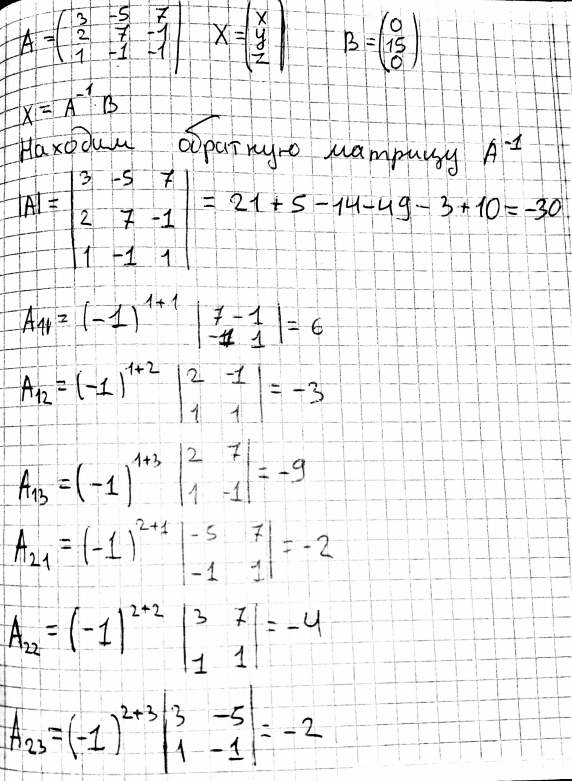 A = (3 -5 7; 2 7 -1; 1 -1 -1) X = (x; y; z) B = (0; 15; 0)
X = A⁻¹ B
Находим обратную матрицу A⁻¹
|A| = |3 -5 7; 2 7 -1; 1 -1 1| = 21 + 5 - 14 - 49 - 3 + 10 = -30
A₁₁ = (-1)¹⁺¹ |7 -1; -1 1| = 6
A₁₂ = (-1)¹⁺² |2 -1; 1 1| = -3
A₁₃ = (-1)¹⁺³ |2 7; 1 -1| = -9
A₂₁ = (-1)²⁺¹ |-5 7; -1 1| = -2
A₂₂ = (-1)²⁺² |3 7; 1 1| = -4
A₂₃ = (-1)²⁺³ |3 -5; 1 -1| = -2